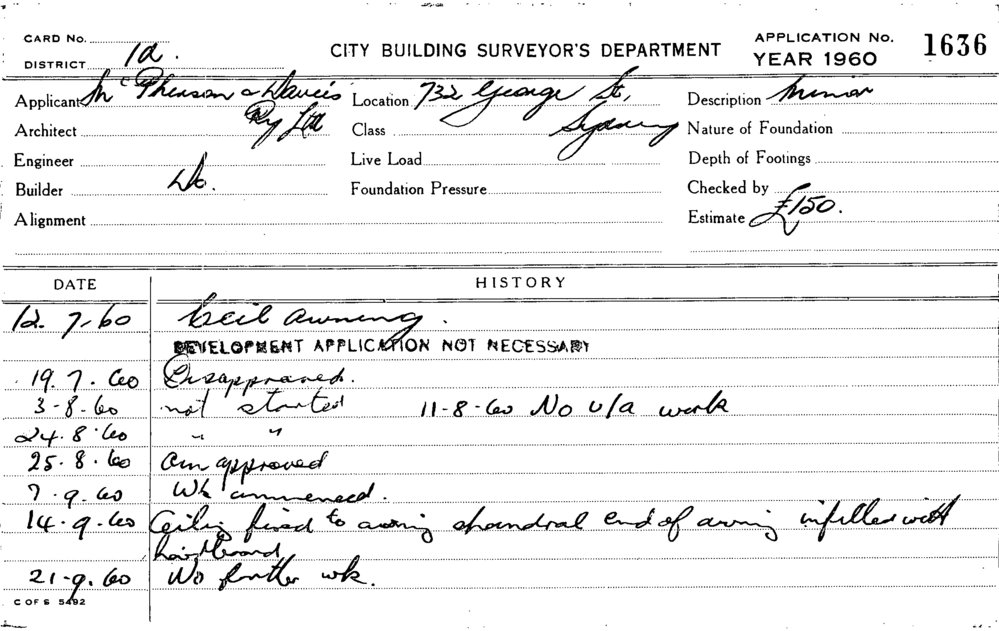 CARD No.
DISTRICT 1d.
CITY BUILDING SURVEYOR'S DEPARTMENT
APPLICATION No. 1636
YEAR 1960
Applicant McPherson & Davies Pty Ltd
Location 732 George St, Sydney
Description Minor
Architect
Class
Nature of Foundation
Engineer
Live Load
Depth of Footings
Builder Do.
Foundation Pressure
Checked by
Alignment
Estimate £150.
DATE HISTORY
12.7.60 Ceil awning.
DEVELOPMENT APPLICATION NOT NECESSARY
19.7.60 Disapproved.
3-8-60 not started 11-8-60 No u/a work
24.8.60 " "
25.8.60 am approved
7.9.60 Wk commenced.
14.9.60 Ceiling fixed to awning end of awning infilled with
hardboard
21-9.60 No further wk.
C OF S 5492